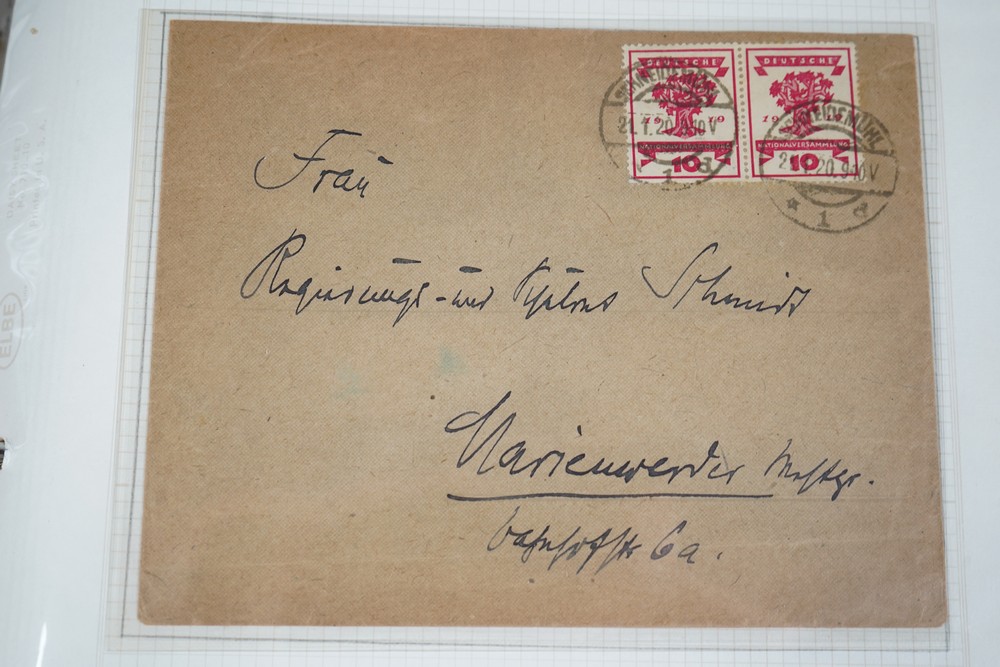 DEUTSCHE DEUTSCHE
19 19 19
NATIONALVERSAMMLUNG NATIONALVERSAMMLUNG
10 10
SCHNEIDEMÜHL SCHNEIDEMÜHL
21.1.20.9-10V 21.1.20.9-10V
1 d * 1 d
Frau
Regierungs- und Schulrat Schmidt
Marienwerder Westpr.
Bahnhofstr 6a.
ELBE